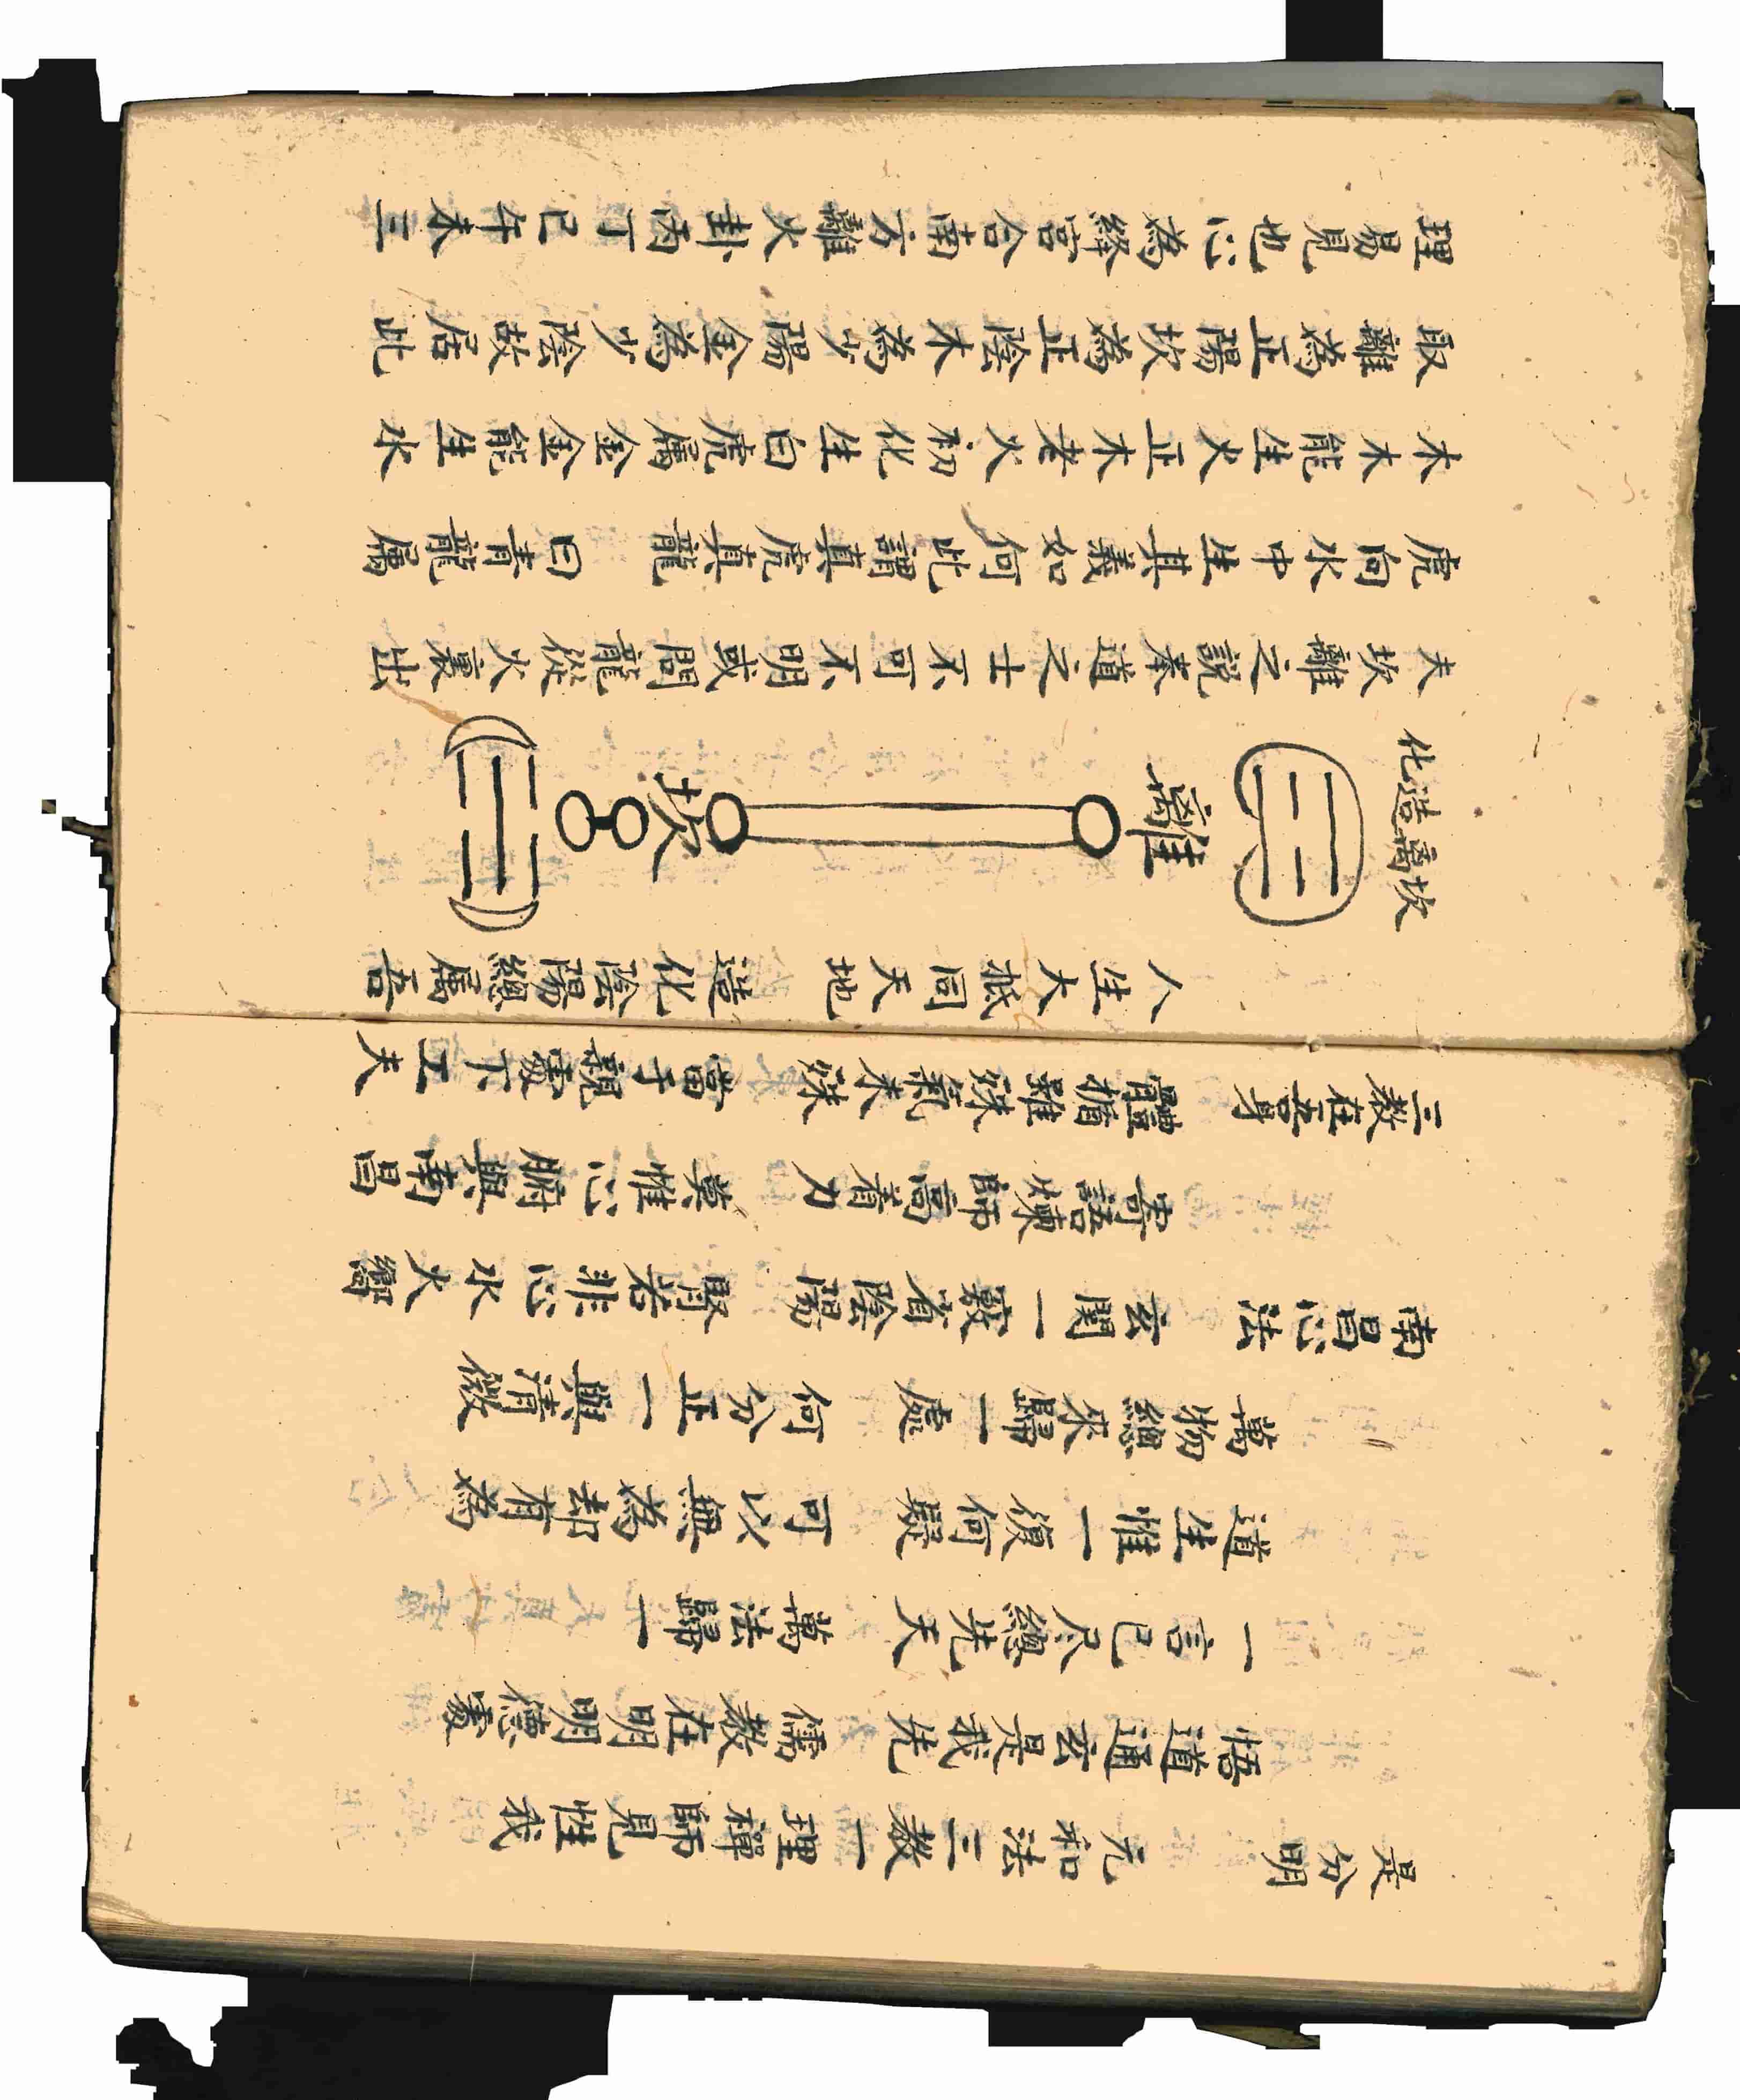 是分明 元和法三教一理禪師見性我
悟道通玄是我先 儒教在明明德處
一言已尽總先天 萬法歸一
道生惟一復何疑 可以無為却有為
萬物總來歸一處 何分正一與清微
南昌心法 玄関一竅省陰陽 腎若非心水火鄉
寄語煉師高着力 莫惟心腑與南昌
三教在吾身 體楯雖殊氣未殊 當于親處下工夫
人生大抵同天地 造化陰陽總屬吾
坎离造化
離
坎
夫坎離之說奉道之士不可不明或問龍從火裏出
虎向水中生其義如何此謂真虎真龍 曰青龍屬
木木能生火正木老火初化生白虎屬金金能生水
取離為正陽坎為正陰木為少陽金為少陰故居此
理易見也心為絳宮合南方離火卦丙丁巳午未三